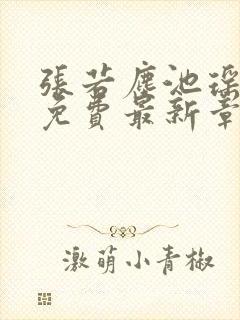 張若塵池瑤
免費最新章
激萌小青椒